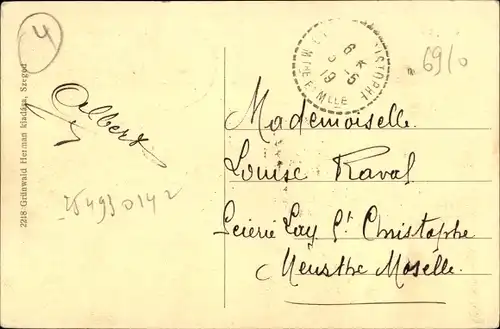 4
6910
6 *
5 - 6
19
Albert
Mademoiselle
Louise Raval
Scierie Lay St. Christophe
Meurthe Moselle.
254930142
2218 Grünwald Herman kiadása, Szeged